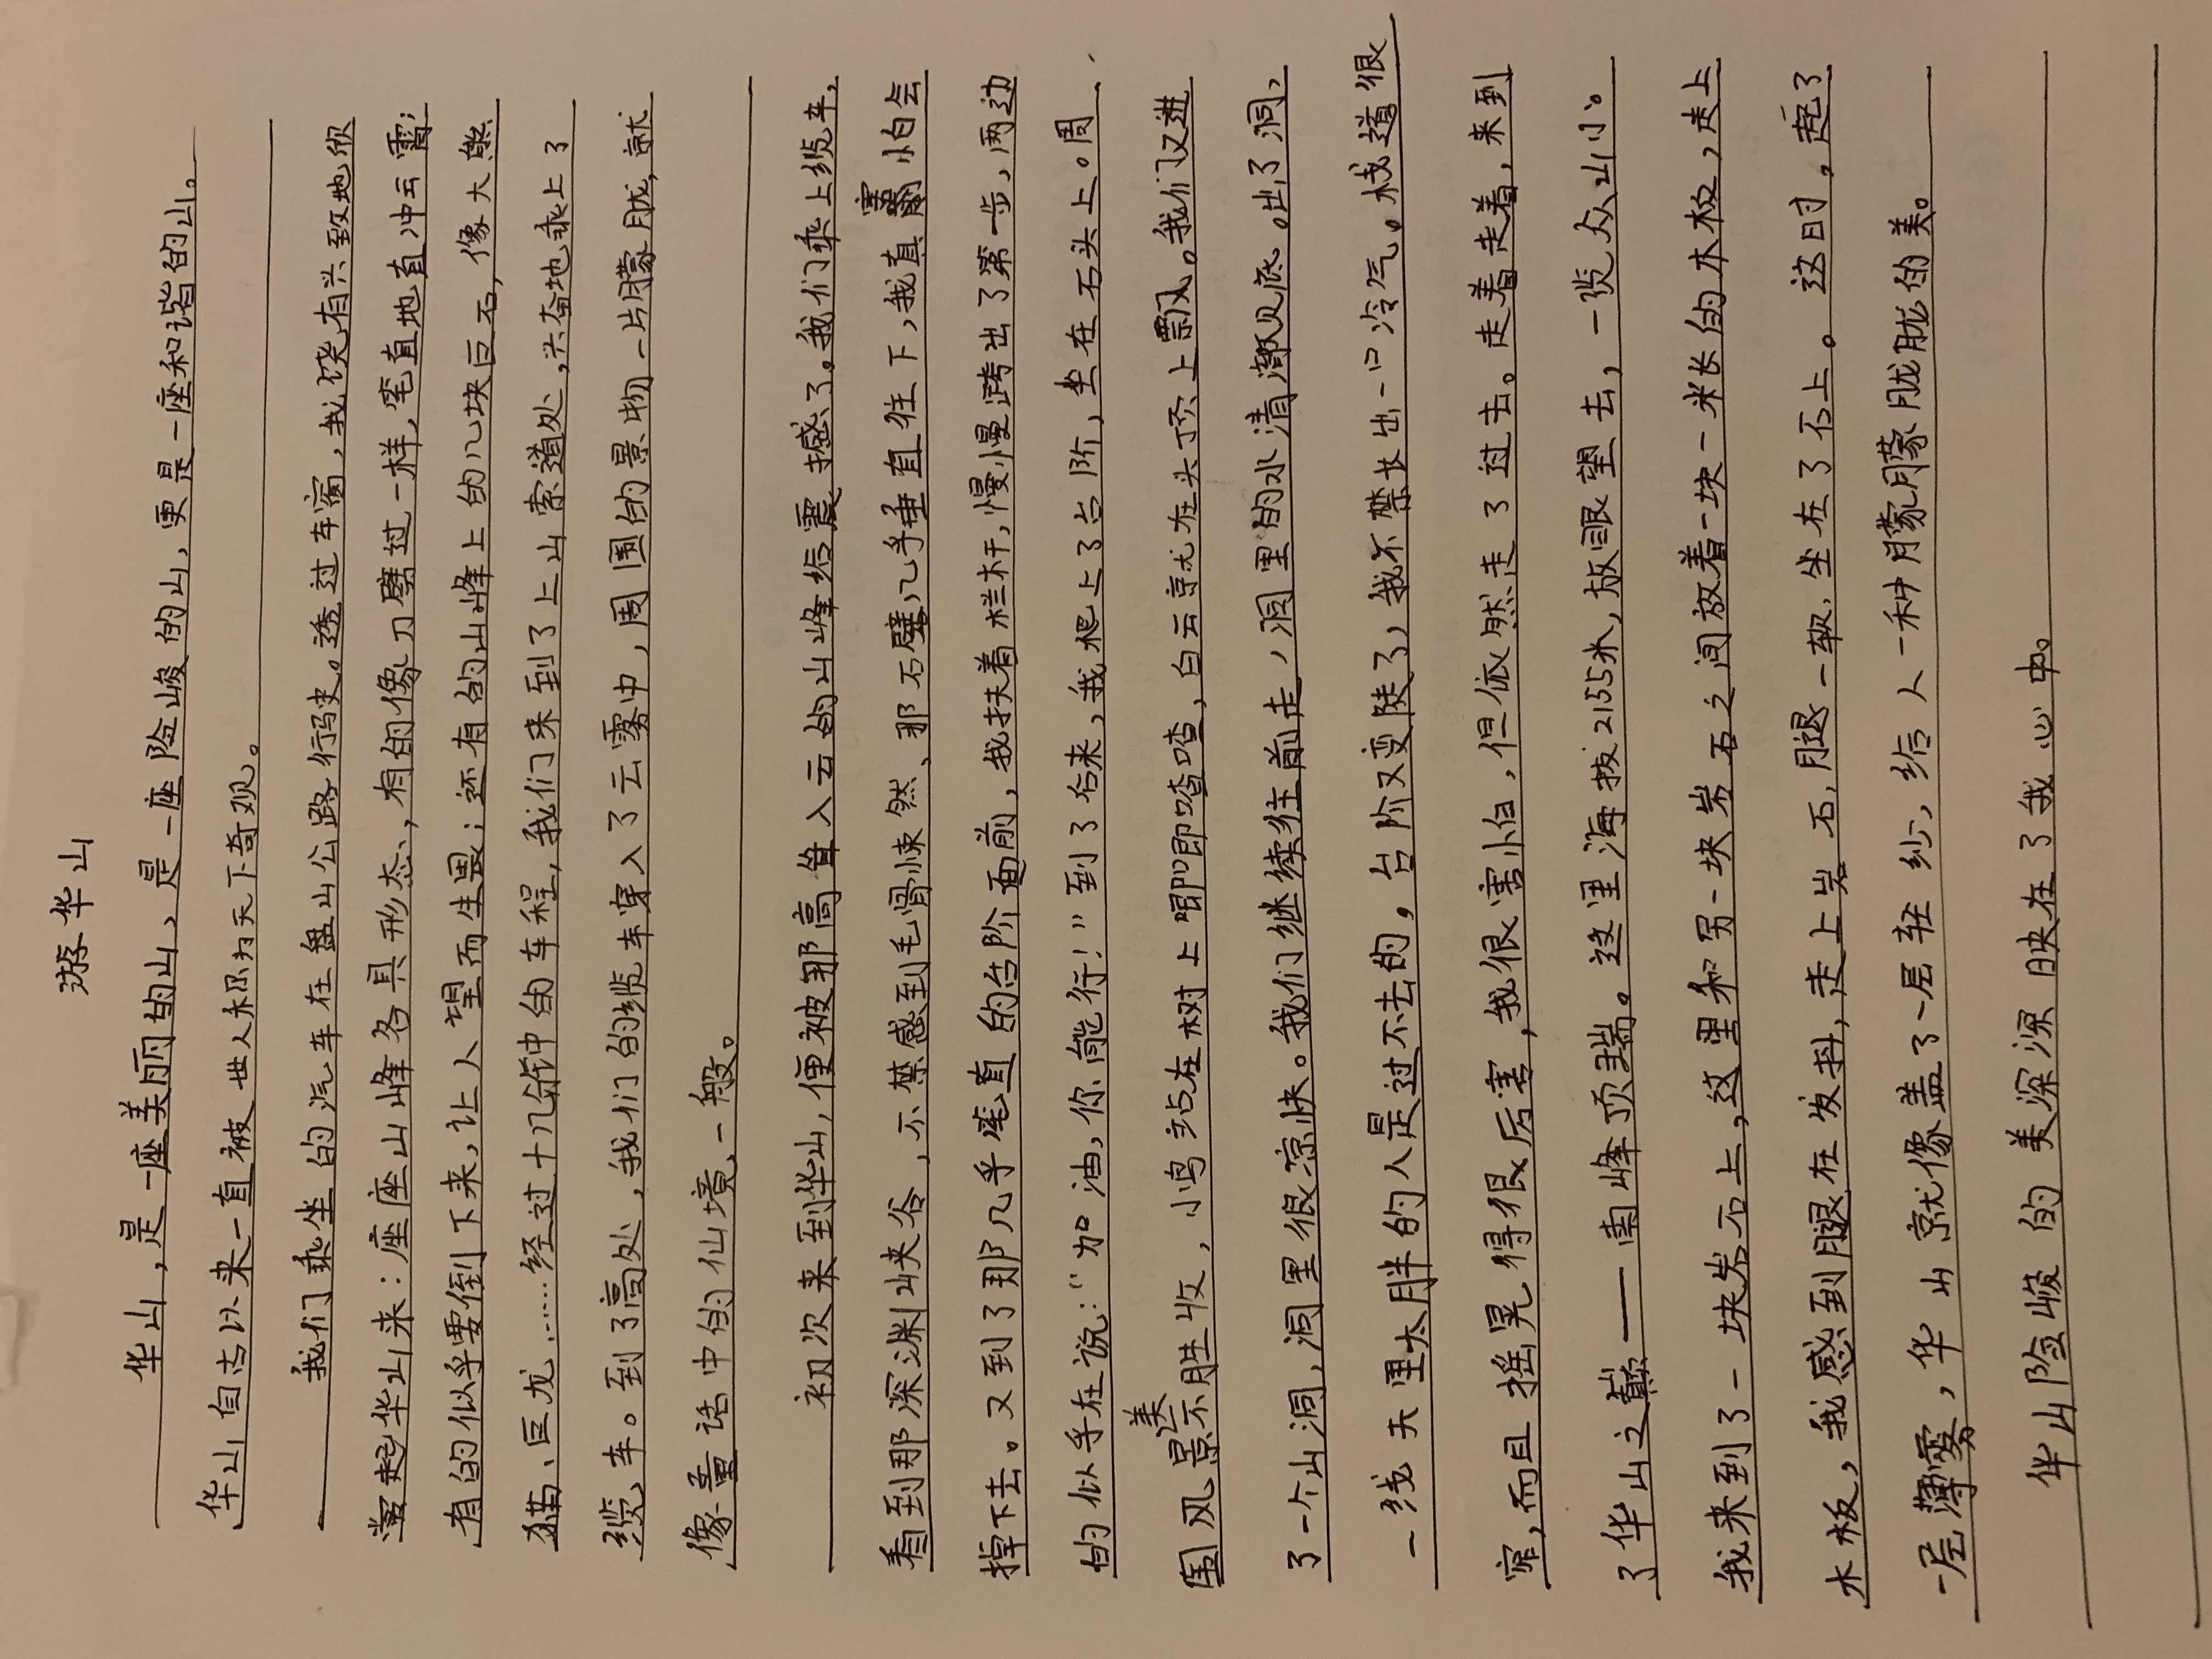 游华山
华山，是一座美丽的山、是一座险峻的山，更是一座和谐的山。
华山自古以来一直被世人称为天下奇观。
我们乘坐的汽车在盘山公路行驶。透过车窗，我饶有兴致地欣
赏起华山来：座座山峰各具形态，有的像刀劈过一样，笔直地直冲云霄；
有的似乎要倒下来，让人望而生畏；还有的山峰上的几块巨石，像大熊
猫、巨龙……经过十几分钟的车程，我们来到了上山索道处，兴奋地乘上了
缆车。到了高处，我们的缆车穿入了云雾中，周围的景物一片朦胧，就
像童话中的仙境一般。
初次来到华山，便被那高耸入云的山峰给震撼了。我们乘上缆车，
看到那深渊峡谷，不禁感到毛骨悚然、那石壁几乎垂直往下，我真害怕会
掉下去。又到了那几乎笔直的台阶面前，我扶着栏杆，慢慢跨出了第一步，两边
的似乎在说：“加油，你能行！”到了后来，我爬上了台阶，坐在石头上。周
围风景美不胜收，小鸟站在树上唧唧喳喳，白云就在头顶上飘。我们又进
了一个山洞，洞里很凉快。我们继续往前走，洞里的水清澈见底。出了洞，
一线天里太胖的人是过不去的，台阶又变陡了，我不禁出一口冷气。栈道很
窄，而且摇晃得很厉害，我很害怕，但依然走了过去。走着走着，来到
了华山之巅——南峰顶端。这里海拔2155米，放眼望去，一览众山小。
我来到了一块岩石上，这里和另一块岩石之间放着一块一米长的木板，走上
木板，我感到腿在发抖，走上岩石，腿一软，坐在了石上。这时，起了
一层薄雾，华山就像盖了一层轻纱，给人一种朦朦胧胧的美。
华山险峻的美深深映在了我心中。